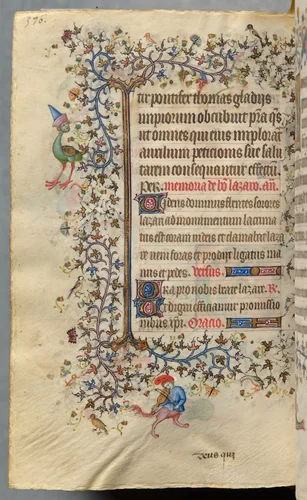 376.
tir pontifex thomas gladijs
impiorum obcubuit p̄ta q̄s
ut omnes qui eius implorāt
auxilium peticionis sue salu
tarem consequantur effectū.
Per. memoria de bō lazaro. añ.
Videns dominus flentes sorores
lazari ad monumentum lacrima
tus est coram iudeis et clamabat laza
re veni foras et prodijt ligatus ma
nus et pedes. Versus.
Ora pro nobis beate lazare. R.
Vt digni efficiamur promissio
nibus xp̄i. Oracio.
deus qui